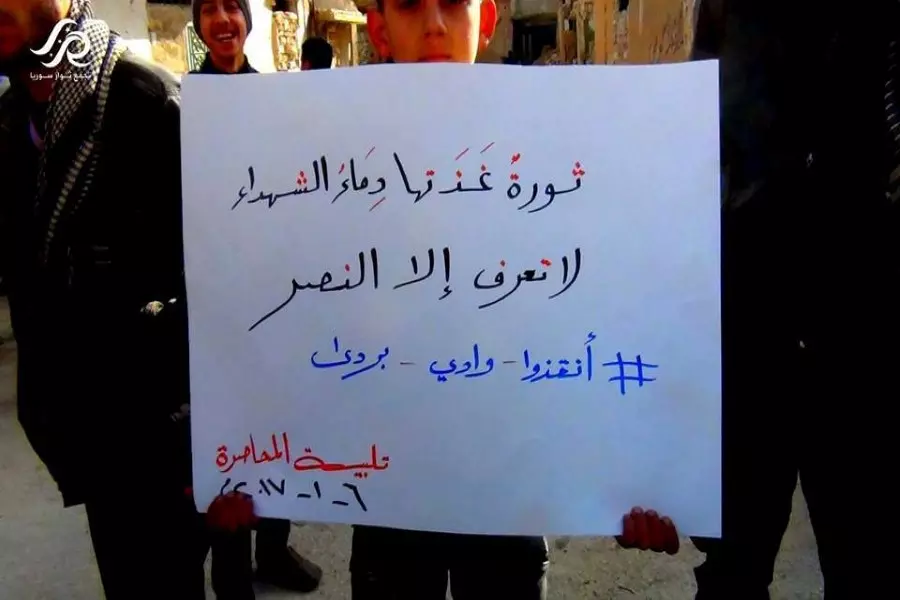 تجمع ثوار سوريا
ثورةٌ غَذَتها دِمَاءُ الشهداء
لا تعرف إلا النصر
# أنقذوا - وادي - بردى
تلبيسة المحاصرة
٦-١-٢٠١٧م